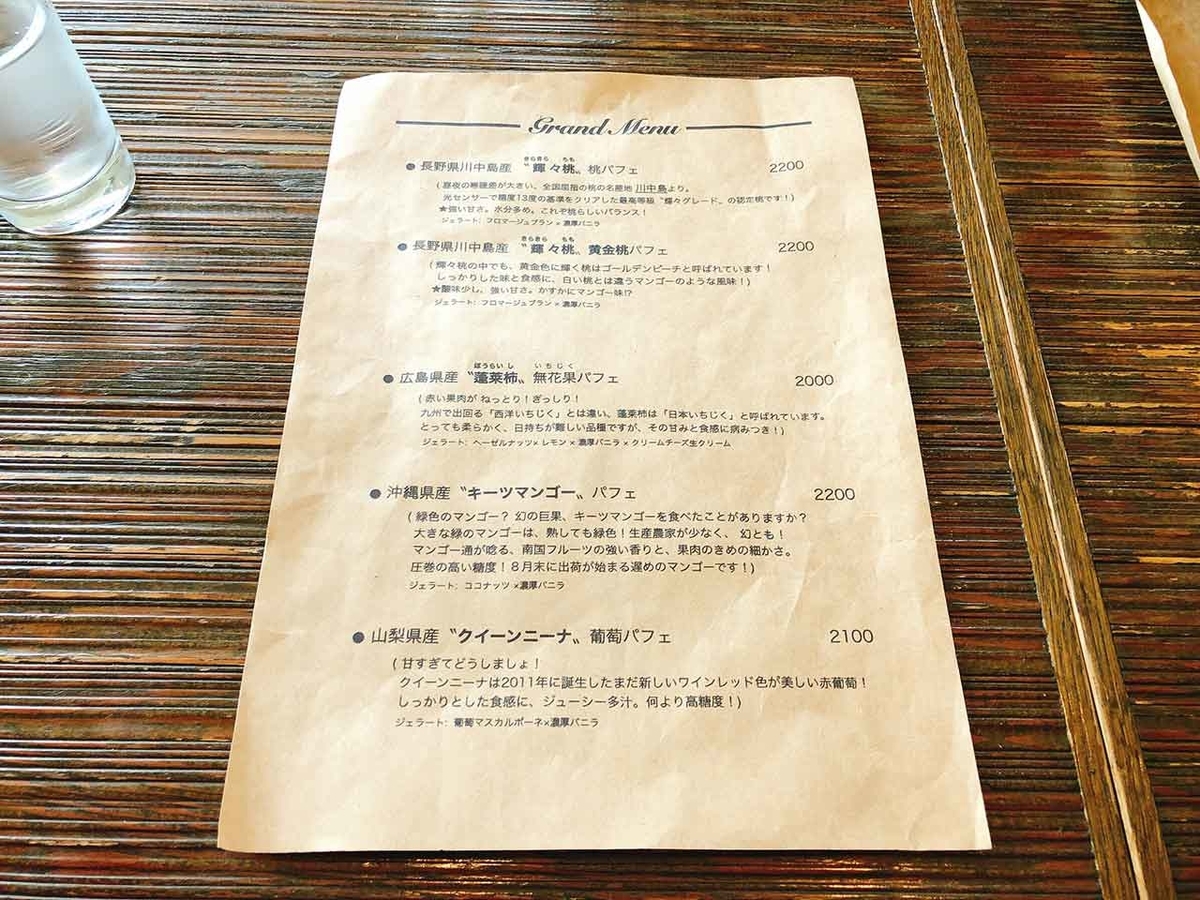 Grand Menu
きらきら もも
● 長野県川中島産 〝輝々桃〟 桃パフェ 2200
( 昼夜の寒暖差が大きい、全国屈指の桃の名産地 川中島より。
光センサーで糖度13度の基準をクリアした最高等級〝輝々グレード〟の認定桃です！)
★強い甘さ。水分多め。これぞ桃らしいバランス！
ジェラート: フロマージュブラン × 濃厚バニラ
きらきら もも
● 長野県川中島産 〝輝々桃〟 黄金桃パフェ 2200
( 輝々桃の中でも、黄金色に輝く桃はゴールデンピーチと呼ばれています！
しっかりした味と食感に、白い桃とは違うマンゴーのような風味！)
★酸味少し、強い甘さ。かすかにマンゴー味!?
ジェラート: フロマージュブラン × 濃厚バニラ
ほうらいし いちじく
● 広島県産〝蓬莱柿〟無花果パフェ 2000
( 赤い果肉が ねっとり！ぎっしり！
九州で出回る「西洋いちじく」とは違い、蓬莱柿は「日本いちじく」と呼ばれています。
とっても柔らかく、日持ちが難しい品種ですが、その甘みと食感に病みつき！)
ジェラート: ヘーゼルナッツ× レモン × 濃厚バニラ × クリームチーズ生クリーム
● 沖縄県産〝キーツマンゴー〟パフェ 2200
( 緑色のマンゴー？ 幻の巨果、キーツマンゴーを食べたことがありますか？
大きな緑のマンゴーは、熟しても緑色！生産農家が少なく、 幻とも！
マンゴー通が唸る、南国フルーツの強い香りと、果肉のきめの細かさ。
圧巻の高い糖度！８月末に出荷が始まる遅めのマンゴーです！)
ジェラート: ココナッツ ×濃厚バニラ
● 山梨県産〝クイーンニーナ〟葡萄パフェ 2100
( 甘すぎてどうしましょ！
クイーンニーナは2011年に誕生したまだ新しいワインレッド色が美しい赤葡萄！
しっかりとした食感に、ジューシー多汁。何より高糖度！)
ジェラート: 葡萄マスカルポーネ×濃厚バニラ